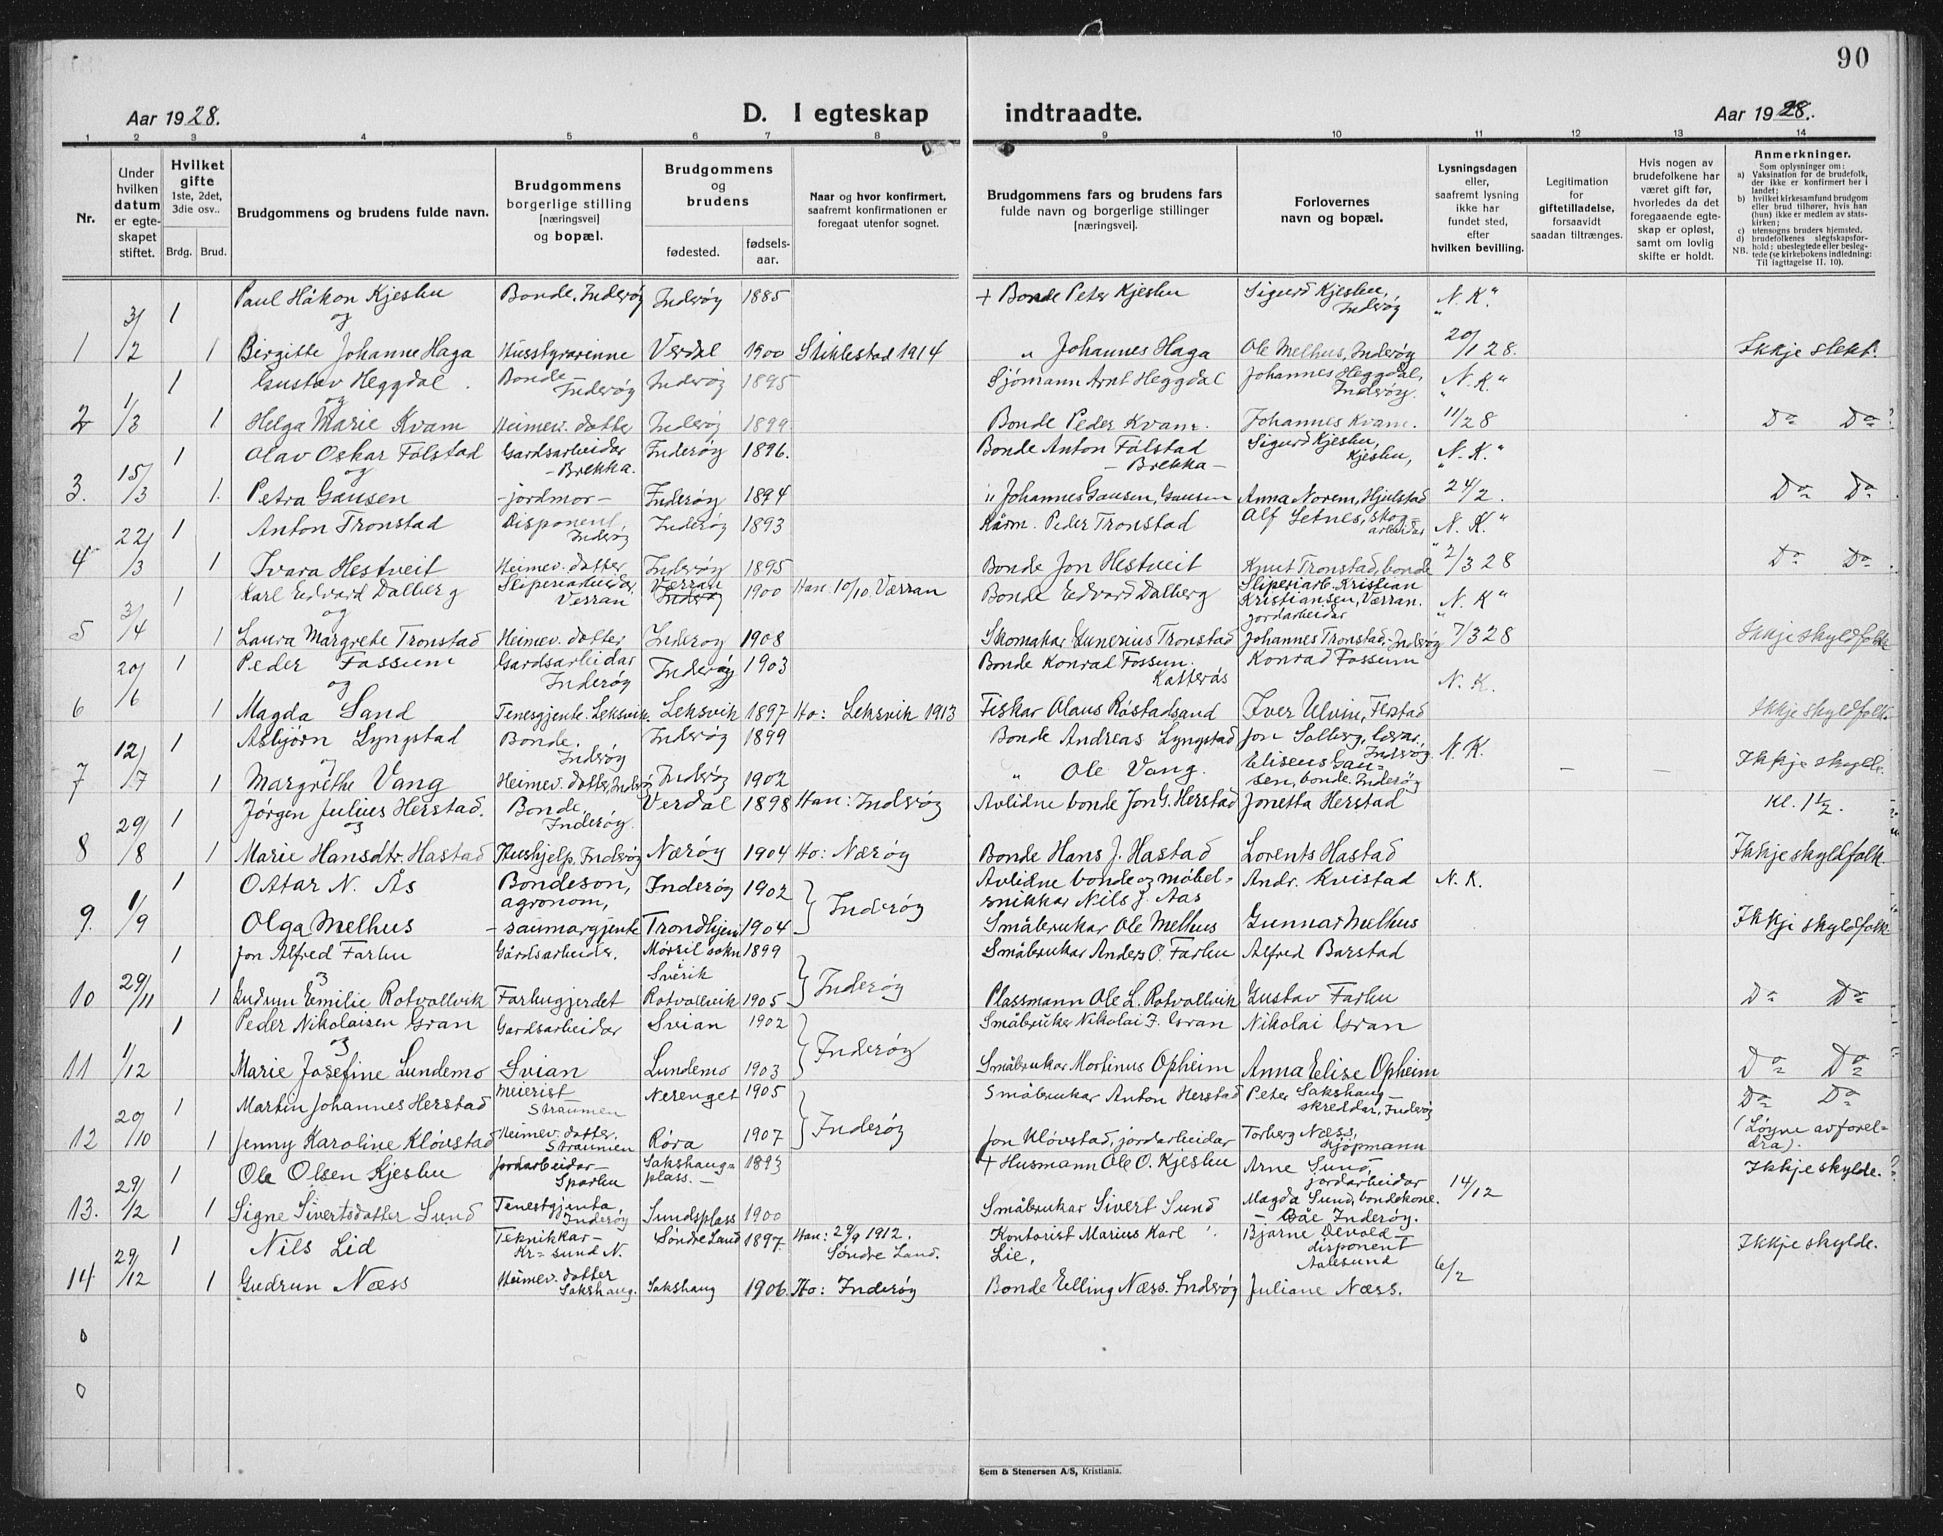 90
Aar 1928. D. I egteskap indtraadte. Aar 1928.
1 2 3 4 5 6 7 8 9 10 11 12 13 14
Nr.
Under hvilken datum er egteskapet stiftet.
Hvilket gifte 1ste, 2det, 3die osv.. Brdg. Brud.
Brudgommens og brudens fulde navn.
Brudgommens borgerlige stilling [næringsvei] og bopæl.
Brudgommens og brudens
fødested. fødsels-aar.
Naar og hvor konfirmert, saafremt konfirmationen er foregaat utenfor sognet.
Brudgommens fars og brudens fars fulde navn og borgerlige stillinger [næringsvei].
Forlovernes navn og bopæl.
Lysningsdagen eller, saafremt lysning ikke har fundet sted, efter hvilken bevilling.
Legitimation for giftetilladelse, forsaavidt saadan tiltrænges.
Hvis nogen av brudefolkene har været gift før, hvorledes da det foregaaende egteskap er opløst, samt om lovlig skifte er holdt.
Anmerkninger.
Som oplysninger om:
a) Vaksination for de brudefolk, der ikke er konfirmert her i landet;
b) hvilket kirkesamfund brudgom eller brud tilhører, hvis han (hun) ikke er medlem av statskirken;
c) utensogns bruders hjemsted,
d) brudefolkenes slegtskapsforhold: ubeslegtede eller beslegtede (se kirkebokens indledning: NB. Til iagttagelse II. 10).
3/ 1 Paul Håkon Kjeshu Bonde, Inderøy Inderøy 1885 + Bonde Peter Kjeshu Sigurd Kjeshu, Inderøy "N. K."
og
1 /2 1 Birgitte Johanne Haga Husstyrarinne Verdal 1900 Stiklestad 1914 " Johannes Haga Ole Melhus, Inderøy 20/1 28. Ikkje slekt.
1 Gustav Heggdal Bonde Inderøy Inderøy 1895 Sjømann Arnt Heggdal Johannes Heggdal, Inderøy. "N. K"
og
2 1/3 1 Helga Marie Kvam Heimev. datte Inderøy 1899 Bonde Peder Kvam. Johannes Kvam. 11/28 Do Do
1 Olav Oskar Følstad Gardsarbeidar - Brekka. Inderøy 1896. Bonde Anton Følstad - Brekka - Sigurd Kjeshu, Kjeshu, "N. K."
og
3. 15/3 1. Petra Gausen - jordmor - Inderøy 1894 " Johannes Gausen, Gausen Anna Norem, Hjulstad 24/2. Do Do
22/ 1 Anton Tronstad Disponent, Inderøy Inderøy 1893 Kårm. Peder Tronstad Alf Letnes, skogarbeidar "N. K."
4 /3 1 Ivara Hestveit Heimev. datter Inderøy 1895 Bonde Jon Hestveit Knut Tronstad, bonde 2/3 28 Do Do
1 Karl Edvard Dalberg Sliperiarbeidar Verran Verran Inderøy 1900 Han. 10/10. Værran Bonde Edvard Dalberg Sliperiarb. Kristian Kristiansen, Værran. "N. K"
og
5 3/4 1 Laura Margrete Tronstad Heimev. datter Inderøy 1908 Skomakar Eunerius Tronstad jordarbeidar Johannes Tronstad, Inderøy 7/3 28 Ikkje skyldfolk
20/ 1 Peder Fossum Gardsarbeidar Inderøy Inderøy 1903 Bonde Konrad Fossum. Katterås Konrad Fossum N. K.
og
6 /6 1 Magda Sand Tenesgjente. Leksvik. Leksvik 1897 Ho: Leksvik 1913 Fiskar Olaus Røstadsand Iver Ulvin, Flostad Ikkje skyldfolk.
12/ 1 Asbjørn Lyngstad Bonde. Inderøy Inderøy 1899 Bonde Andreas Lyngstad Jon Solberg, lærar, Inderøy N. K.
7 /7 1 Margrethe Vang Heimev. datter, Inderøy Inderøy 1902 " Ole Vang. Eliseus Gausen, bonde. Inderøy - - Ikkje skylde.
29/ 1 Jørgen Julius Herstad. Bonde, Inderøy. Verdal 1898 Han: Inderøy Avlidne bonde Jon G. Herstad Jonetta Herstad Kl. 1 1/2.
og
8 /8 1 Marie Hansdtr. Hastad Hushjelp, Inderøy Nærøy 1904 Ho: Nærøy Bonde Hans J. Hastad Lorents Hastad Ikkje skyldfolk.
1 Ottar N. Ås Bondeson, agronom, Inderøy 1902 } Inderøy Avlidne bonde og møbelsnikkar Nils J. Aas Andr. Kvistad N. K.
9. 1/9 1 Olga Melhus - saumargjente Trondhjem 1904 Småbrukar Ole Melhus Gunnar Melhus Ikkje skyldfolk
1 Jon Alfred Farhu Gårdsarbeider. Mørsil sokn Sverik 1899 } Inderøy Småbrukar Anders O. Farhu Alfred Barstad
10 29/11 1 Gudrun Emilie Rotvollvik Farhugjerdet Rotvollvik 1905 Plassmann Ole L. Rotvollvik Gustav Farhu Do Do
1 Peder Nikolaisen Gran Gardsarbeidar Svian 1902 } Inderøy Småbruker Nikolai J. Gran Nikolai Gran
11 1/12 1 Marie Josefine Lundemo Svian Lundemo 1903 Småbrukar Mortinus Opheim Anna Elise Opheim Do Do
20/ 1 Martin Johannes Herstad Meierist Straumen Nerenget 1905 } Inderøy Småbrukar Anton Herstad Peter Sakshaug skreddar, Inderøy Do Do
12 /10 1 Jenny Karoline Kløvstad Heimev. datter. Straumen Røra 1907 Jon Kløvstad, jordarbeidar Torberg Næss, kjøpmann (Løyne av foreldra).
29/ 1 Ole Olsen Kjeshu Jordarbeidar - Sparhu Sakshaug-plass. - 1893 + Husmann Ole O. Kjeshu Arne Sund, jordarbeidar Ikkje skylde.
13. /12 1 Signe Sivertsdatter Sund Tenestgjenta, Inderøy Sundsplass 1900 Småbrukar Sivert Sund Magda Sund, bondekone. - Båe Inderøy. 14/12
29/ 1 Nils Lid Teknikkar - Kr=sund N. Søndre Land 1897. Han: 29/9 1912. Søndre Land. Kontorist Marius Karl Lie, Bjarne Devold - disponent Aalesund Ikkje skylde.
14 /12 1 Gudrun Næss Heimev. datter Sakshaug. Sakshaug 1906. Ho: Inderøy Bonde Elling Næss. Inderøy Juliane Næss. 6/2
0
0
Sem & Stenersen A/S, Kristiania.